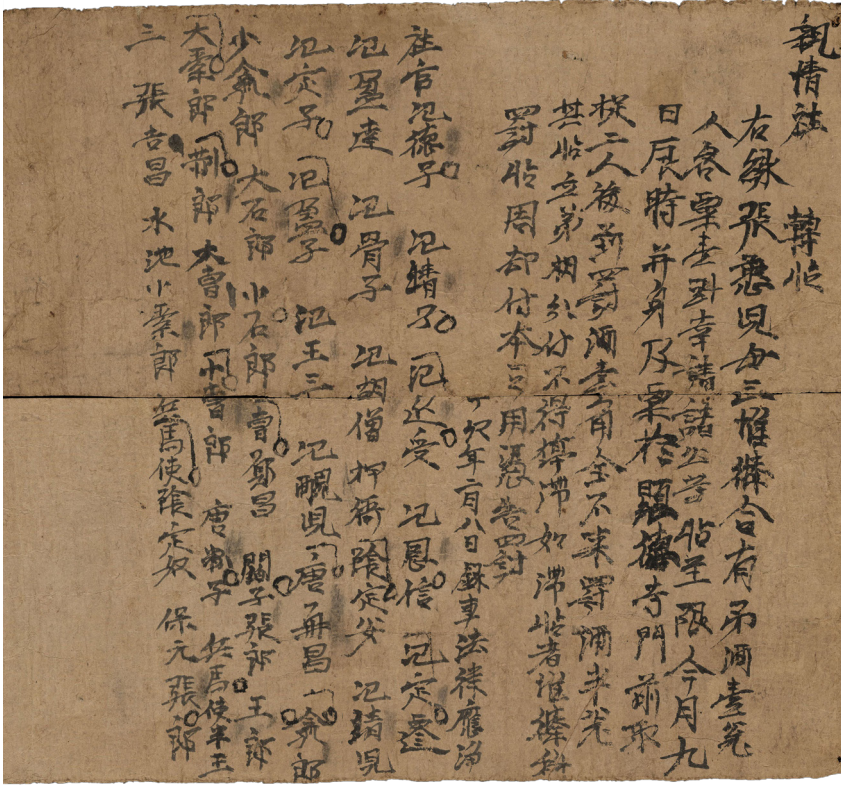 親情社 轉帖
右緣張憨兒母亡准條合有吊酒壹瓮
人各粟壹斗幸請諸公等帖至限今月九
日辰時并身及粟於顯德寺門前取
捉二人後到罰酒壹角全不來罰酒半瓮
其帖立弟相分付不得停滯如滯帖者准條科
罰帖周却付本司用憑告罰
丁亥年二月八日錄事法律應淨
社官氾德子 氾蜻子 氾延受 氾恩信 氾定
氾盈達 氾骨子 氾胡僧 押衙陰定安 氾靖兒
氾定子 氾盈子 氾王三 氾 兒 唐再昌 翕郎
少翕郎 大石郎 小石郎 曹鄭昌 閻子張郎 王郎
大衆郎 荆郎 大曹郎 小曹郎 唐 子 兵馬使米王
三 張吉昌 水池小衆郎 兵馬使陰定奴 保元張郎